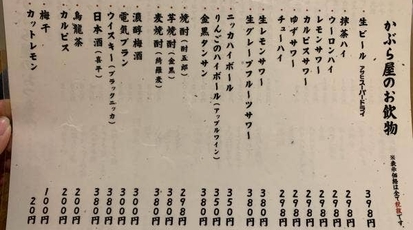 かぶら屋のお飲物
※表示価格は全て税抜です。
・生ビール アサヒスーパードライ 398円
・抹茶ハイ 298円
・ウーロンハイ 298円
・レモンサワー 298円
・カルピスサワー 298円
・ゆずサワー 298円
・チューハイ 298円
・生レモンサワー 380円
・生グレープフルーツサワー 380円
・ニッカハイボール 350円
・りんごのハイボール(アップルワイン) 350円
・金黒タンサン 380円
・焼酎(財五郎) 298円
・芋焼酎(金黒) 380円
・麦焼酎(綺羅麦) 380円
・濃醇梅酒 300円
・電気ブラン 300円
・ウイスキー(ブラックニッカ) 380円
・日本酒(喜平) 380円
・カルピス 200円
・烏龍茶 200円
・梅干 100円
・カットレモン 20円